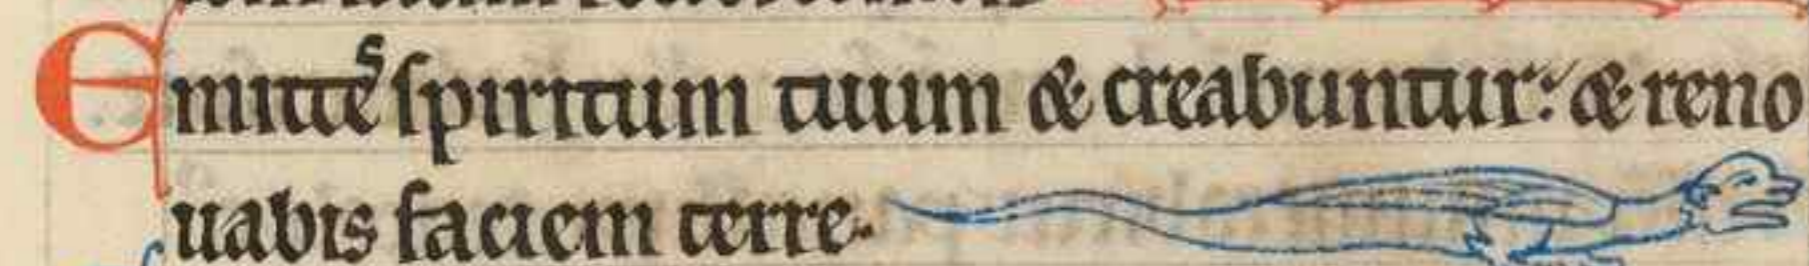 Emittes spiritum tuum & creabuntur: & reno
uabis faciem terre.